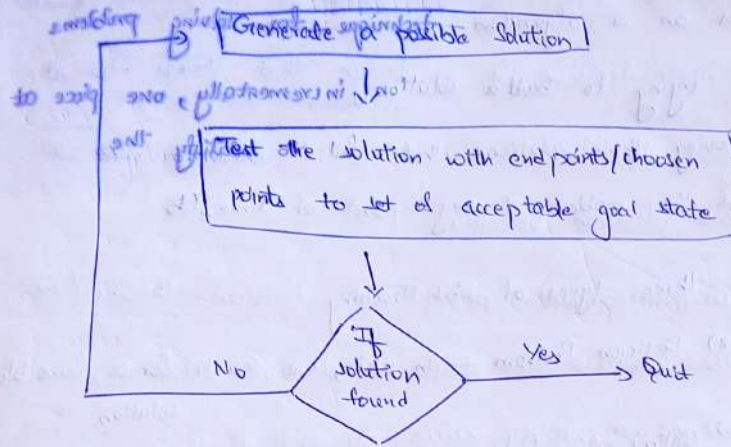 Generate a possible Solution
Test the solution with endpoints/choosen
points to set of acceptable goal state
If
solution
found
No
Yes
Quit